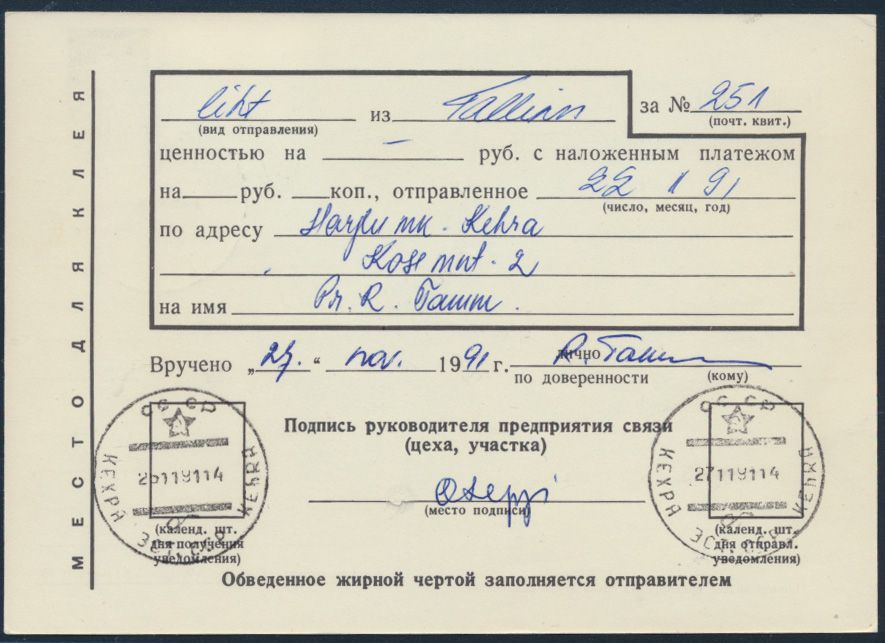 МЕСТО ДЛЯ КЛЕЯ
liht из Tallinn за № 251
(вид отправления) (почт. квит.)
ценностью на — руб. с наложенным платежом
на руб. коп., отправленное 22 1 91
(число, месяц, год)
по адресу Harju mk. Kehra
Kose mnt. 2
на имя Pr. R. Tamm.
Вручено „27.“ nov. 1991 г. лично R. Tamm
по доверенности (кому)
Подпись руководителя предприятия связи
(цеха, участка)
(место подписи)
СССР
КЕХРА KEHRA
ЭСТ. ССР
(календ. шт.
дня получения
уведомления)
СССР
27119114
КЕХРА KEHRA
ЭСТ. ССР
(календ. шт.
дня отправл.
уведомления)
Обведенное жирной чертой заполняется отправителем